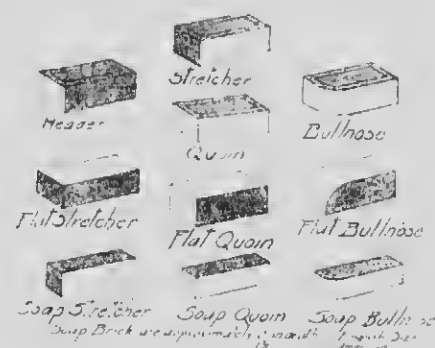 Stretcher
Header
Quoin
Bullnose
Flat Stretcher
Flat Quoin
Flat Bullnose
Soap Stretcher
Soap Quoin
Soap Bullnose
Soap Brick are approximately